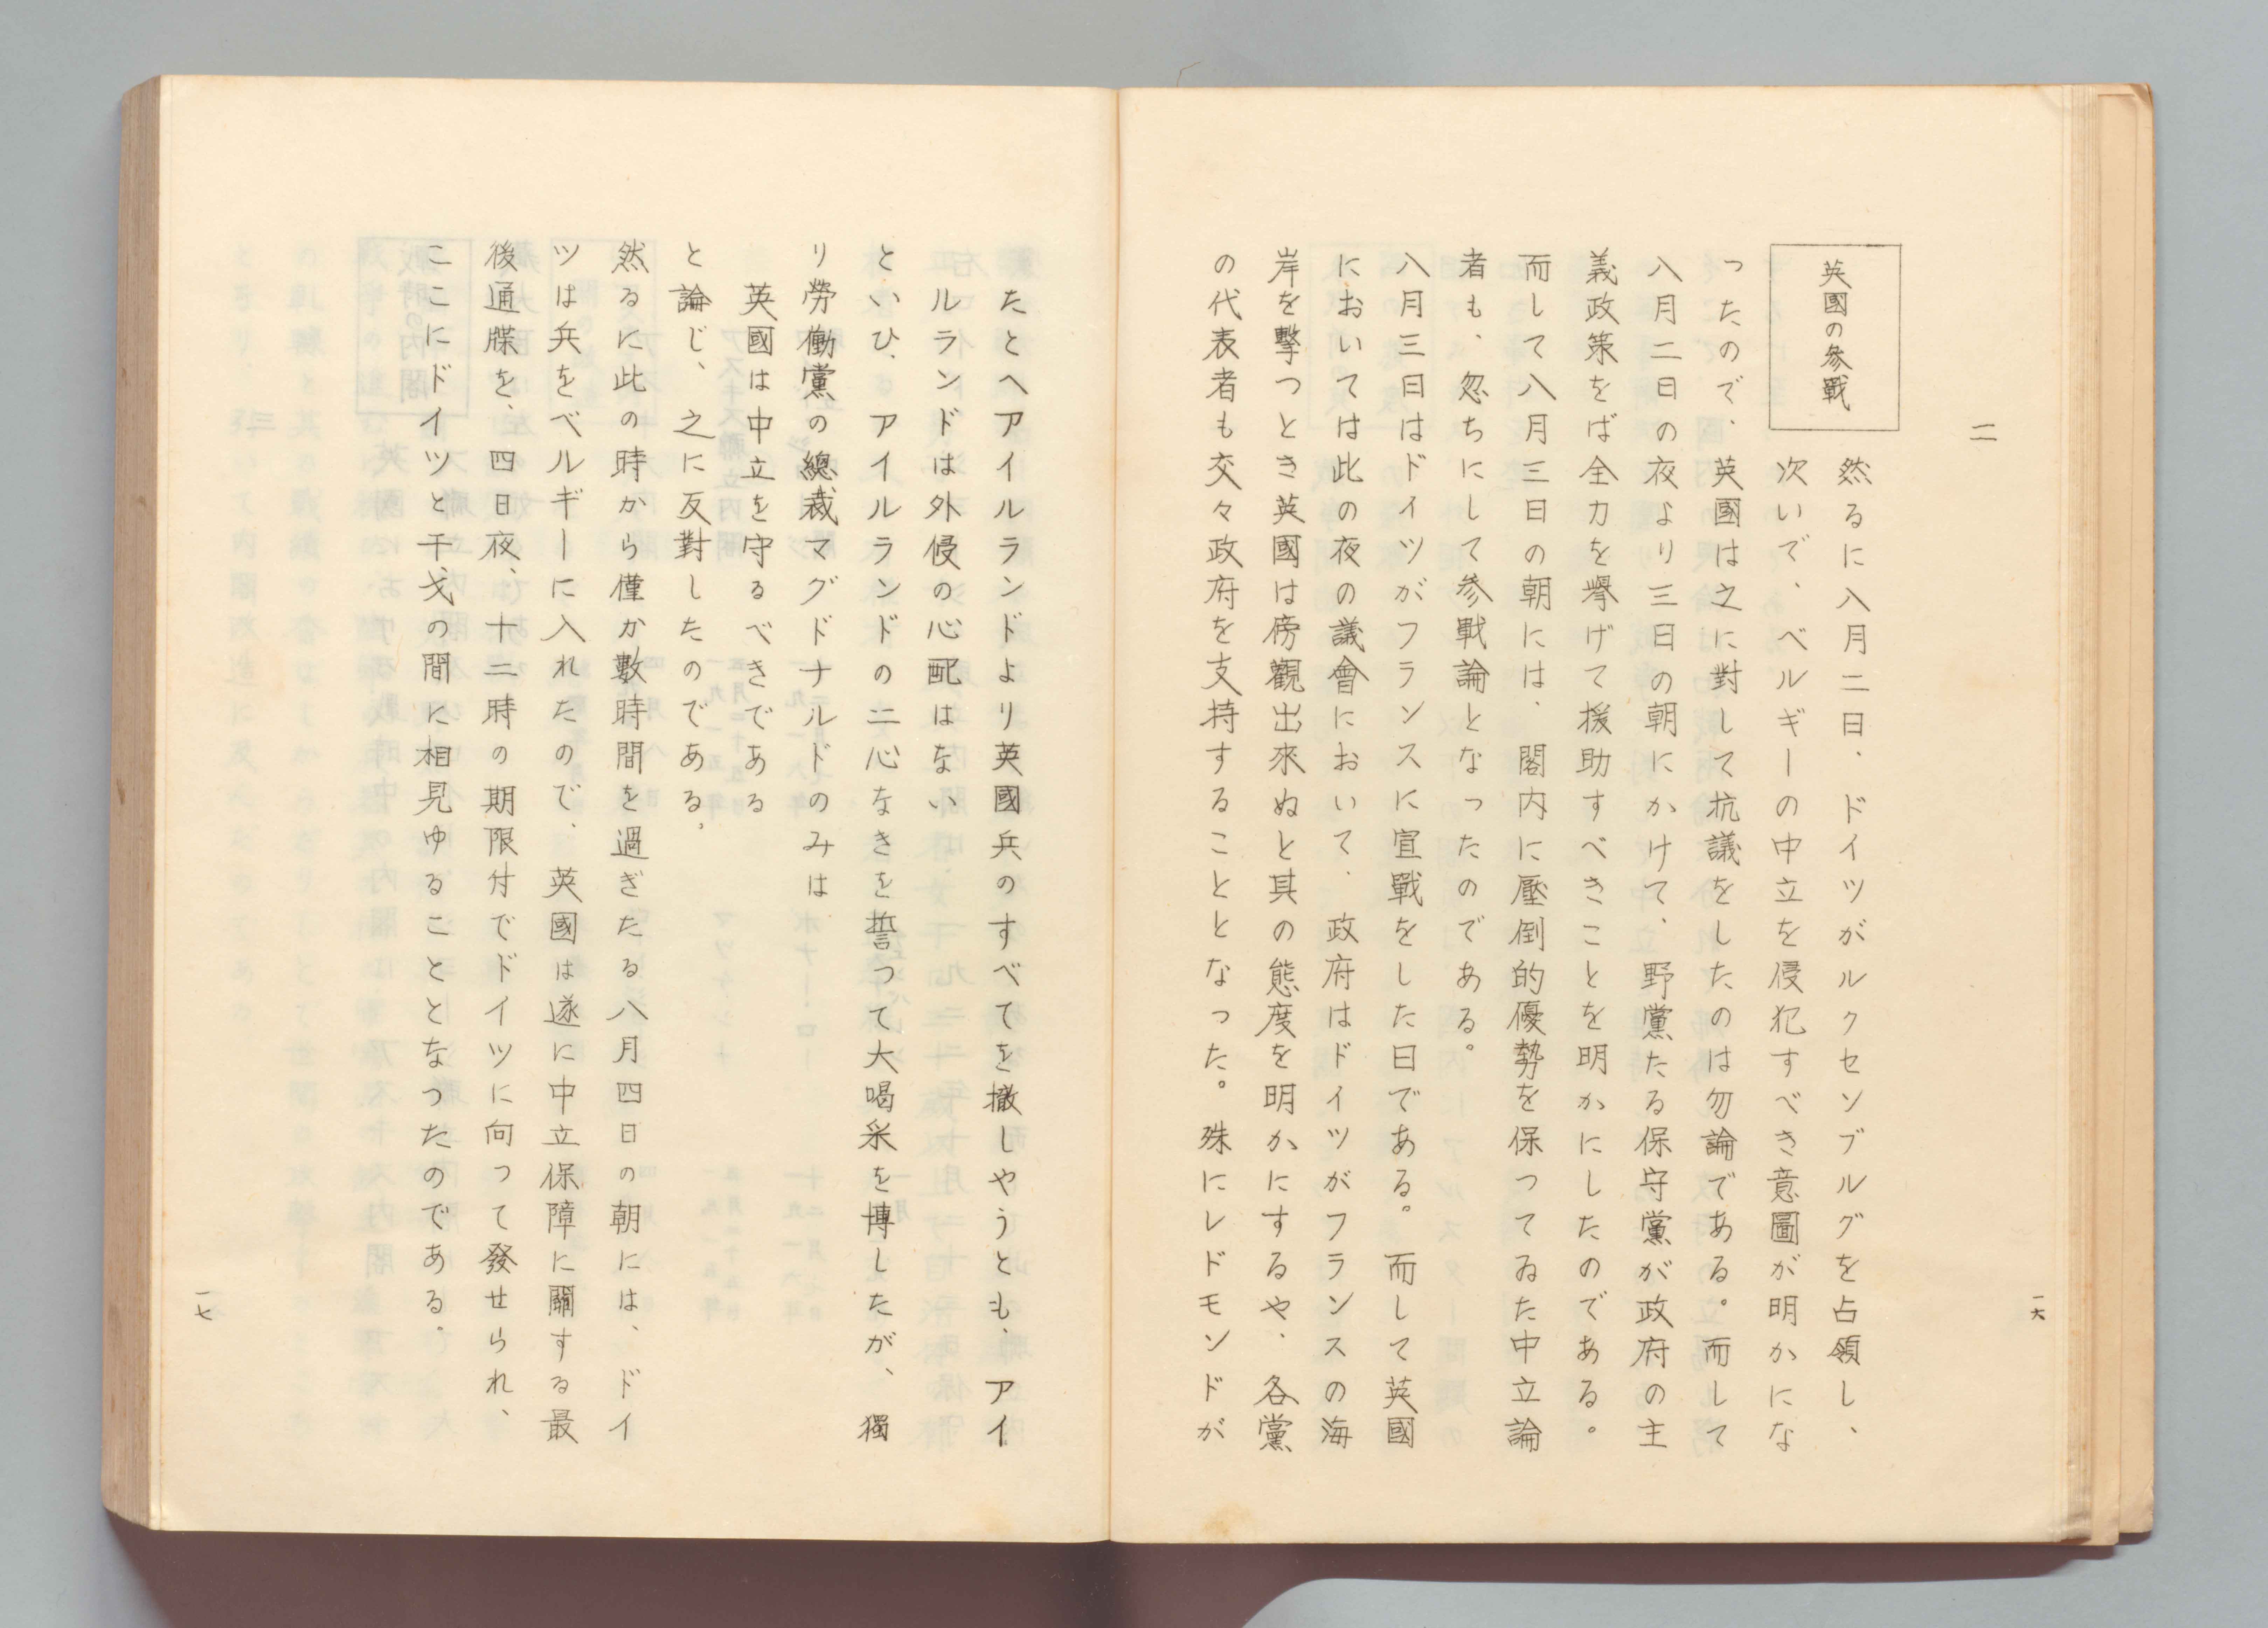 二
英國の參戰
然るに八月二日、ドイツがルクセンブルグを占領し、
次いで、ベルギーの中立を侵犯すべき意圖が明かにな
つたので、英國は之に對して抗議をしたのは勿論である。而して
八月二日の夜より三日の朝にかけて、野黨たる保守黨が政府の主
義政策をば全力を擧げて援助すべきことを明かにしたのである。
而して八月三日の朝には、閣内に壓倒的優勢を保つてゐた中立論
者も、忽ちにして参戰論となつたのである。
八月三日はドイツがフランスに宣戰をした日である。而して英國
においては此の夜の議會において、政府はドイツがフランスの海
岸を擊つとき英國は傍觀出來ぬと其の態度を明かにするや、各黨
の代表者も交々政府を支持することとなつた。殊にレドモンドが
一六
たとへアイルランドより英國兵のすべてを撤しやうとも、アイ
ルランドは外侵の心配はない
といひ、アイルランドの二心なきを誓つて大喝采を博したが、獨
り勞働黨の總裁マグドナルドのみは
英國は中立を守るべきである
と論じ、之に反對したのである。
然るに此の時から僅か數時間を過ぎたる八月四日の朝には、ドイ
ツは兵をベルギーに入れたので、英國は遂に中立保障に關する最
後通牒を、四日夜、十二時の期限付でドイツに向つて發せられ、
ここにドイツと干戈の間に相見ゆることとなつたのである。
一七